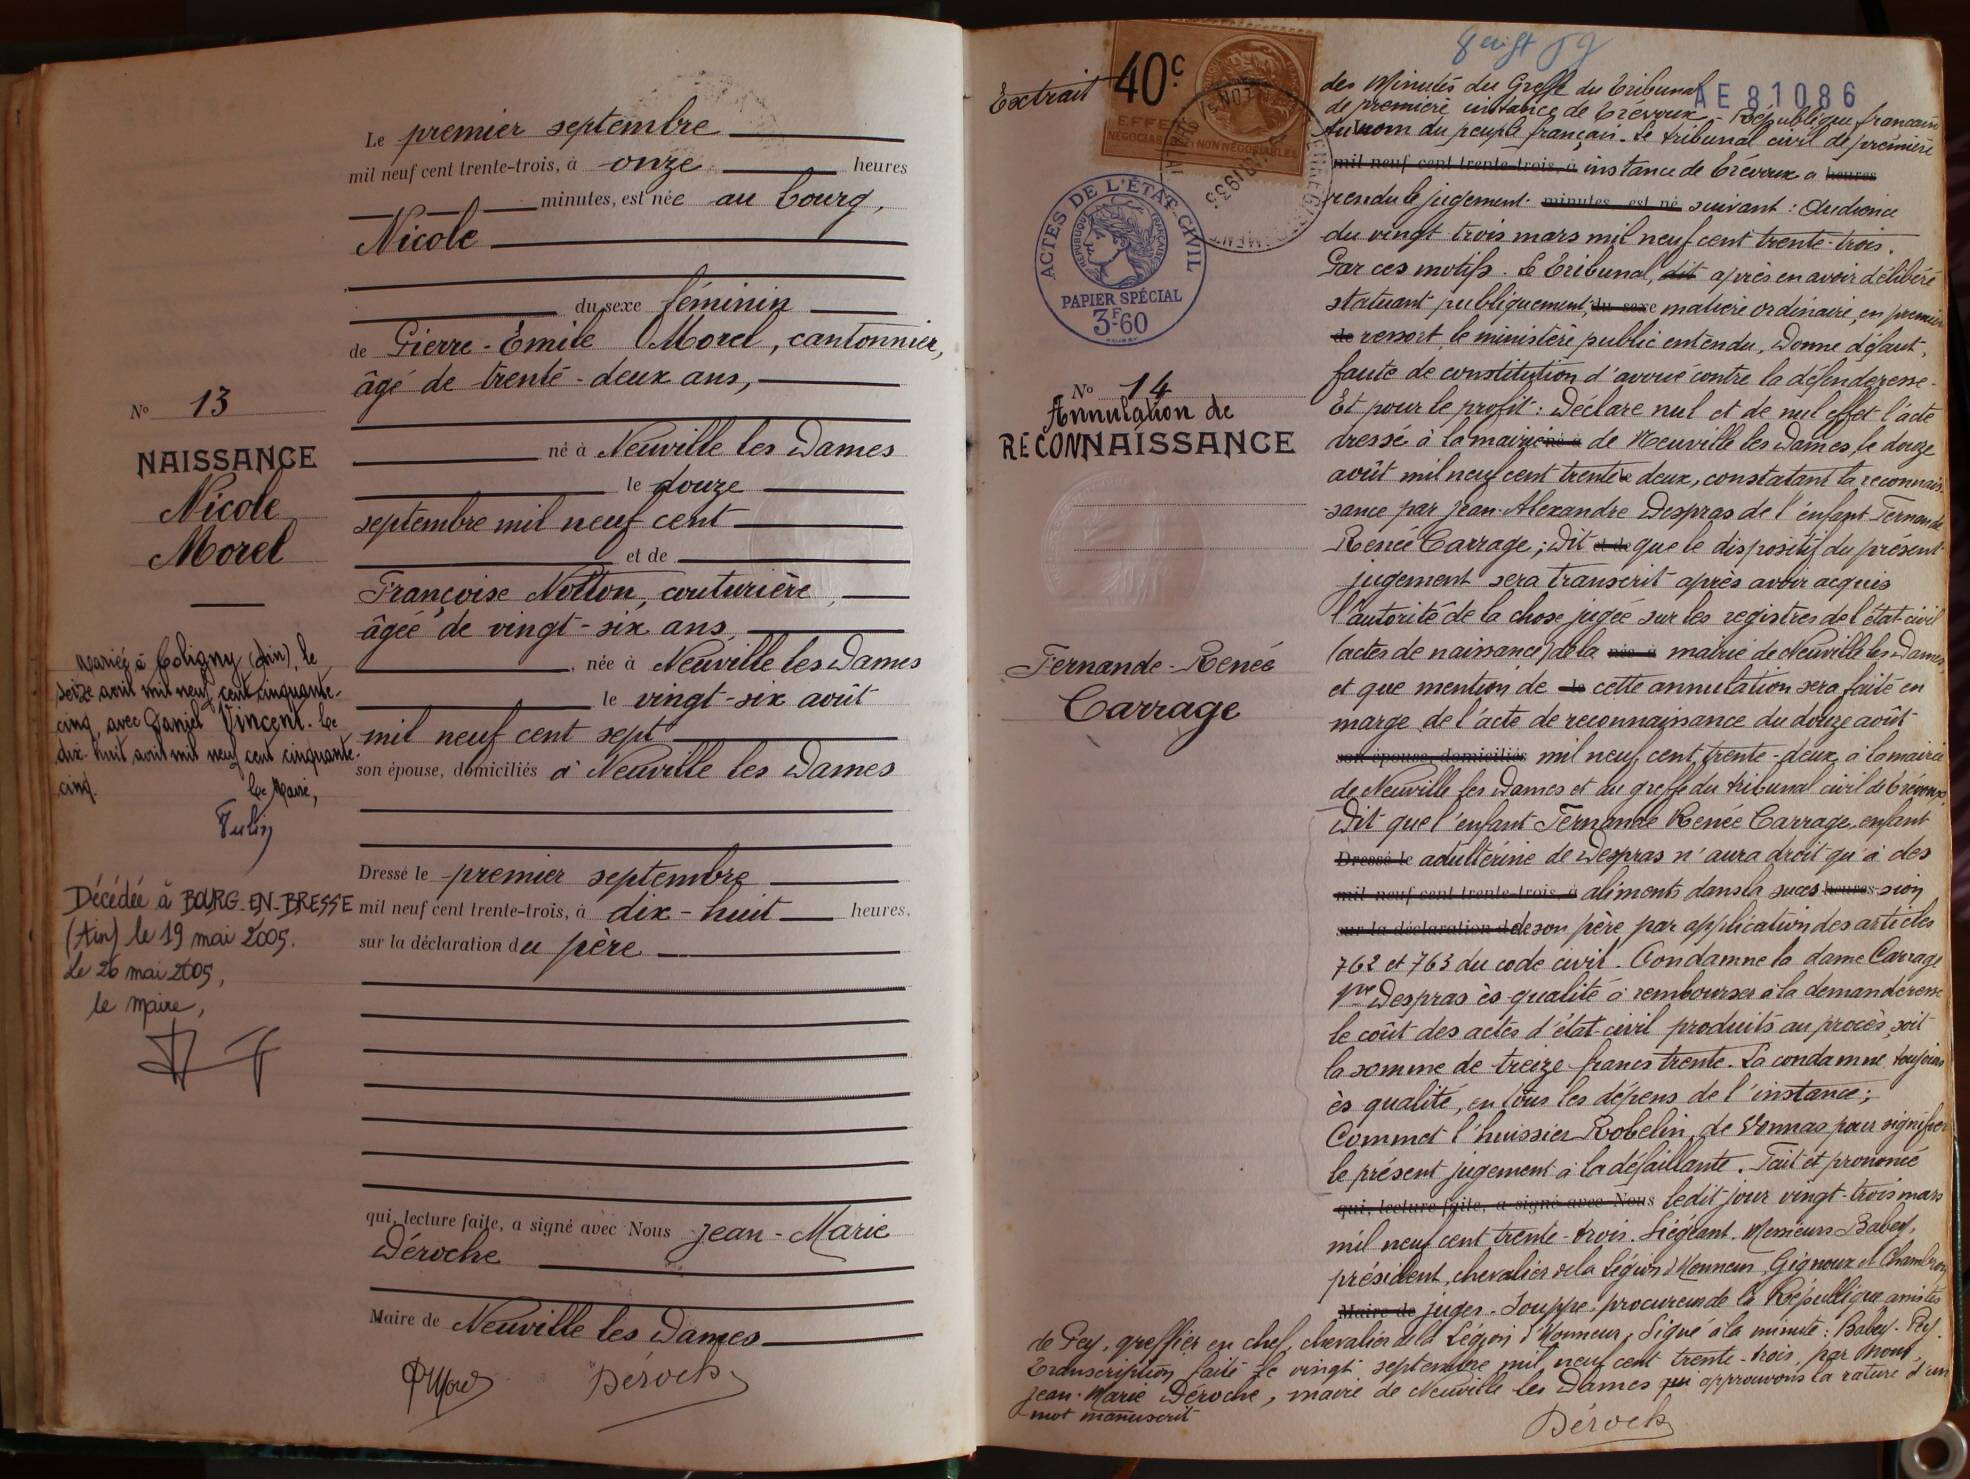 Le premier septembre
mil neuf cent trente-trois, à onze heures
minutes, est née au bourg,
Nicole
du sexe féminin
de Pierre-Emile Morel, cantonnier,
âgé de trente-deux ans,
né à Neuville les Dames
le douze
septembre mil neuf cent
et de
Françoise Notton, couturière,
âgée de vingt-six ans
née à Neuville les Dames
le vingt-six août
mil neuf cent sept
son épouse, domiciliés à Neuville les Dames
Dressé le premier septembre
mil neuf cent trente-trois, à dix-huit heures.
sur la déclaration du père
qui, lecture faite, a signé avec Nous Jean-Marie
Déroche
Maire de Neuville les Dames
PMorel Déroche
No 13
NAISSANCE
Nicole
Morel
Mariée à Coligny (Ain), le
seize avril mil neuf cent cinquante-
cinq, avec Daniel Vincent. Le
dix-huit avril mil neuf cent cinquante-
cinq.
Le Maire,
Décédée à BOURG-EN-BRESSE
(Ain) le 19 mai 2005.
Le 26 mai 2005,
le maire,
AE 81086
40c
EFFETS
NÉGOCIABLES NON NÉGOCIABLES
ENREGISTREMENT
1933
ACTES DE L'ÉTAT-CIVIL
RÉPUBLIQUE FRANÇAISE
PAPIER SPÉCIAL
3F60
No 14
Annulation de
RECONNAISSANCE
Fernande-Renée
Carrage
Extrait des Minutes du Greffe du Tribunal
de première instance de Trévoux. République française
Au nom du peuple français. Le tribunal civil de première
mil neuf cent trente-trois, à instance de Trévoux a heures
rendu le jugement minutes, est né suivant : Audience
du vingt trois mars mil neuf cent trente-trois.
Par ces motifs. Le Tribunal, dit après en avoir délibéré
statuant publiquement, du sexe matière ordinaire, en premier
de ressort, le ministère public entendu, Donne défaut,
faute de constitution d'avoué contre la défenderesse.
Et pour le profit : Déclare nul et de nul effet l'acte
dressé à la mairie né à de Neuville les Dames, le douze
août mil neuf cent trente le deux, constatant la reconnais-
-sance par Jean-Alexandre Despras de l'enfant Fernande
Renée Carrage ; Dit et de que le dispositif du présent
jugement sera transcrit après avoir acquis
l'autorité de la chose jugée sur les registres de l'état civil
(actes de naissance) de la née à mairie de Neuville les Dames,
et que mention de le cette annulation sera faite en
marge de l'acte de reconnaissance du douze août
son épouse, domiciliés mil neuf cent trente-deux, à la mairie
de Neuville les Dames et au greffe du tribunal civil de Trévoux.
Dit que l'enfant Fernande Renée Carrage, enfant
Dressé le adultérine de Despras n'aura droit qu'à des
mil neuf cent trente-trois, à aliments dans la succes heures -sion
sur la déclaration d de son père par application des articles
762 et 763 du code civil. Condamne la dame Carrage
Vve Despras ès-qualité à rembourser à la demanderesse
le coût des actes d'état-civil produits au procès, soit
la somme de treize francs trente. La condamne, toujours
ès qualité, en tous les dépens de l'instance ;
Commet l'huissier Robelin, de Vonnas pour signifier
le présent jugement à la défaillante. Fait et prononcé
qui, lecture faite, a signé avec Nous ledit jour vingt-trois mars
mil neuf cent trente-trois. Siégeant. Messieurs Babey,
président, chevalier de la Légion d'Honneur, Gignoux et Chambron
Maire de juges. Jouppe, procureur de la République, assistés
de Pey, greffier en chef, chevalier de la Légion d'Honneur, Signé à la minute : Babey - Pey.
Transcription faite le vingt septembre mil neuf cent trente-trois, par Nous,
Jean-Marie Déroche, maire de Neuville les Dames qui approuvons la rature d'un
mot manuscrit
Déroche